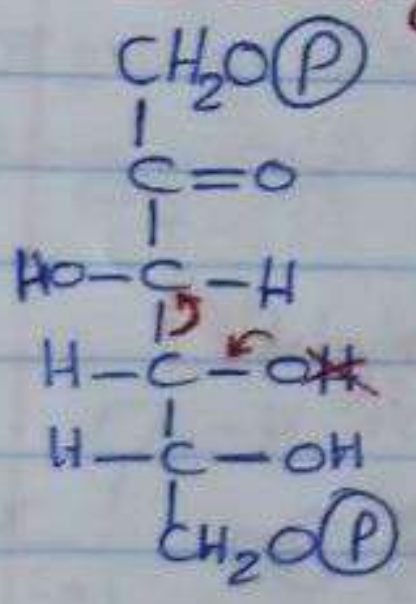 CH₂OⓅ
C=O
HO-C-H
H-C-OH
H-C-OH
CH₂OⓅ